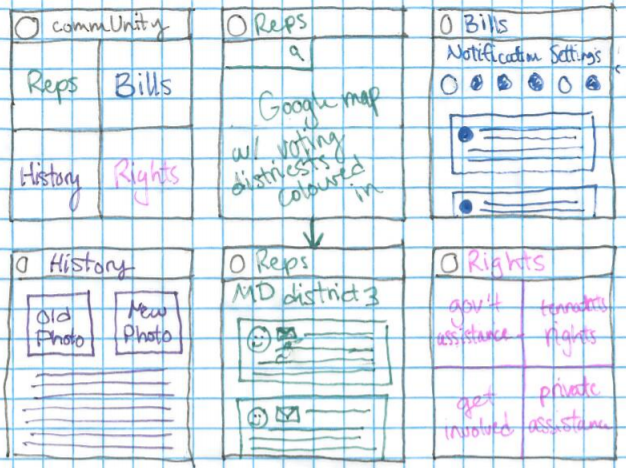 commUnity
Reps
Bills
History
Rights
Reps
Google map
w/ voting
districsts
coloured
in
Bills
Notification Settings
History
Old
Photo
New
Photo
Reps
MD district 3
Rights
gov't
assistance
tennants
rights
get
involved
private
assistance